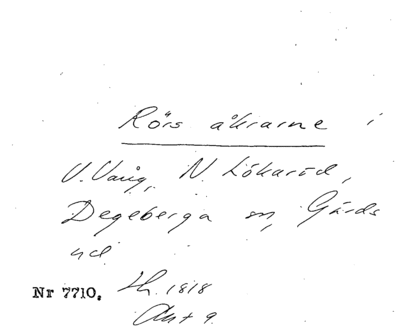 Rörs åkrarne i
V. Vång, N. Lökaröd,
Degeberga sn, Gärds
hd
Nr 7710. Lh. 1818
Akt 9.